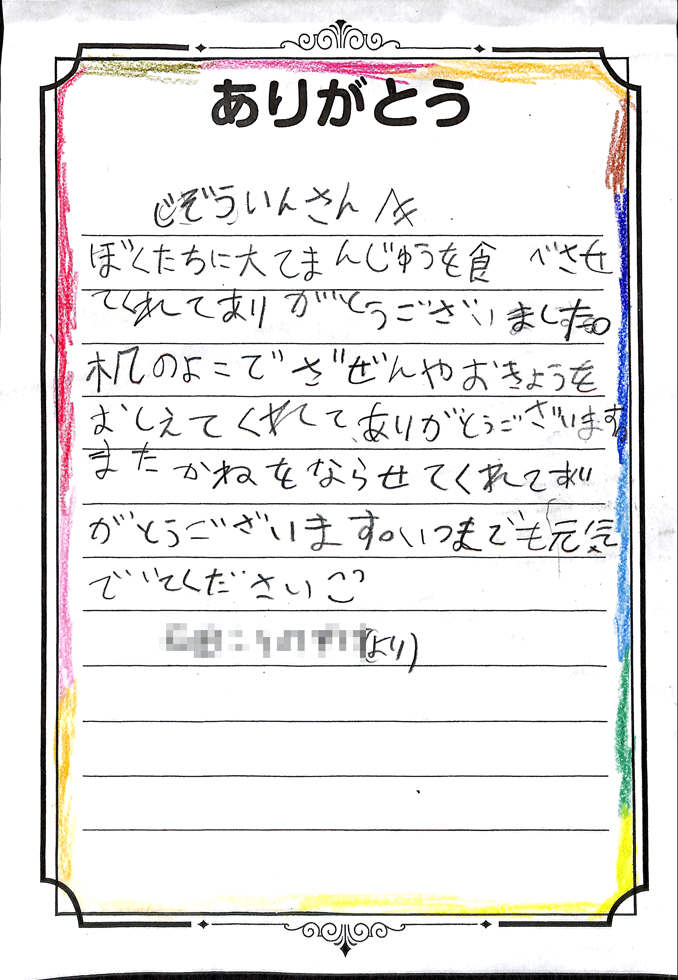 ありがとう
じぞういんさんへ
ぼくたちに大てまんじゅうを食べさせ
てくれてありがとうございました。
机のよこでざぜんやおきょうを
おしえてくれて、ありがとうございます。
またかねをならせてくれてあり
がとうございます。いつまでも元気
でいてください
より